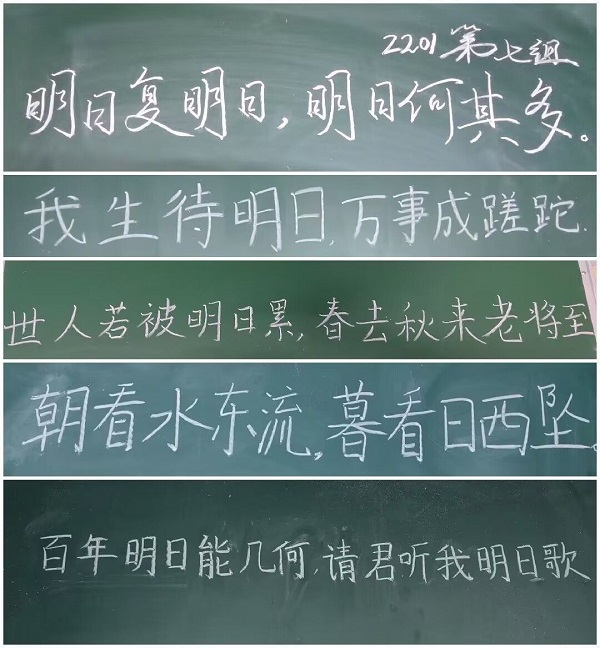 2201第七组
明日复明日，明日何其多。
我生待明日，万事成蹉跎.
世人若被明日累，春去秋来老将至
朝看水东流，暮看日西坠。
百年明日能几何，请君听我明日歌